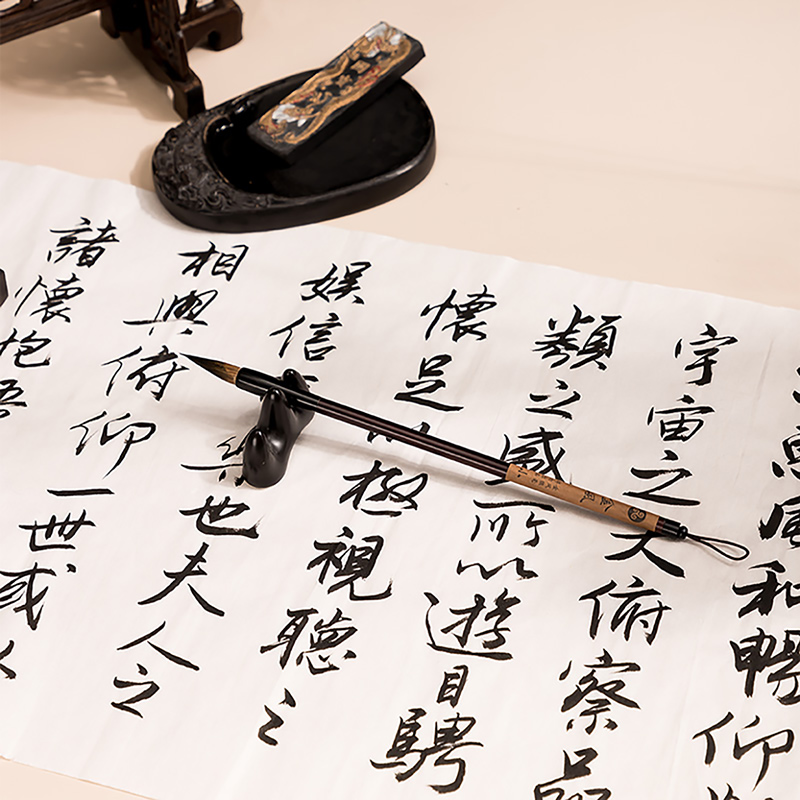 惠風和暢仰
宇宙之大俯察品
類之盛所以遊目騁
懷足以極視聽之
娱信也夫人之
相與俯仰一世或
諸懷抱